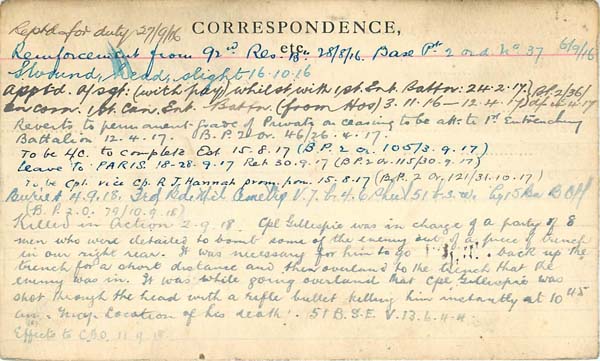 Reptd for duty 27/9/16
CORRESPONDENCE,
etc.
Reinforcement from 92nd Res. Bn 28/8/16. Base Pt 2 ord. No 37 6/9/16
G.S. Wound, Head, slight 16.10.16
Apptd. A/Sgt. (with pay) whilst with 1st. Ent. Battn. 24.2.17.
on com. 1st. Can. Ent. Battn. (from Hos) 3.11.16 - 12.4.17
Reverts to permanent grade of Private on ceasing to be att. to 1st Entrenching
Battalion 12.4.17. B.P. 2 Or. 46/26.4.17.
To be L/C. to complete Est 15.8.17 (B.P. 2 Or. 105/3.9.17)
Leave To: PARIS. 18-28.9.17 Ret 30.9.17 (B.P. 2 or. 115/30.9.17)
To be Cpl. vice Cpl. R.J. Hannah prom. 15.8.17 (B.P. 2 Or. 121/31.10.17)
Buried 4.9.18. V.7.b.4.6 Sheet 51 15 Bn
(B.P. 2.O. 79/10.9.18)
Killed in Action 2-9-18. Cpl Gillespie was in charge of a party of 8
men who were detailed to bomb some of the enemy out of a piece of trench
in our right rear. It was necessary for him to go back up the
trench for a short distance and then overland to the trench that the
enemy was in. It was while going overland that Cpl Gillespie was
shot through the head with a rifle bullet killing him instantly at 10 45
am. Location of his death: 51 B.S.E. V.13.b.4.4.
Effects to 11.9.18